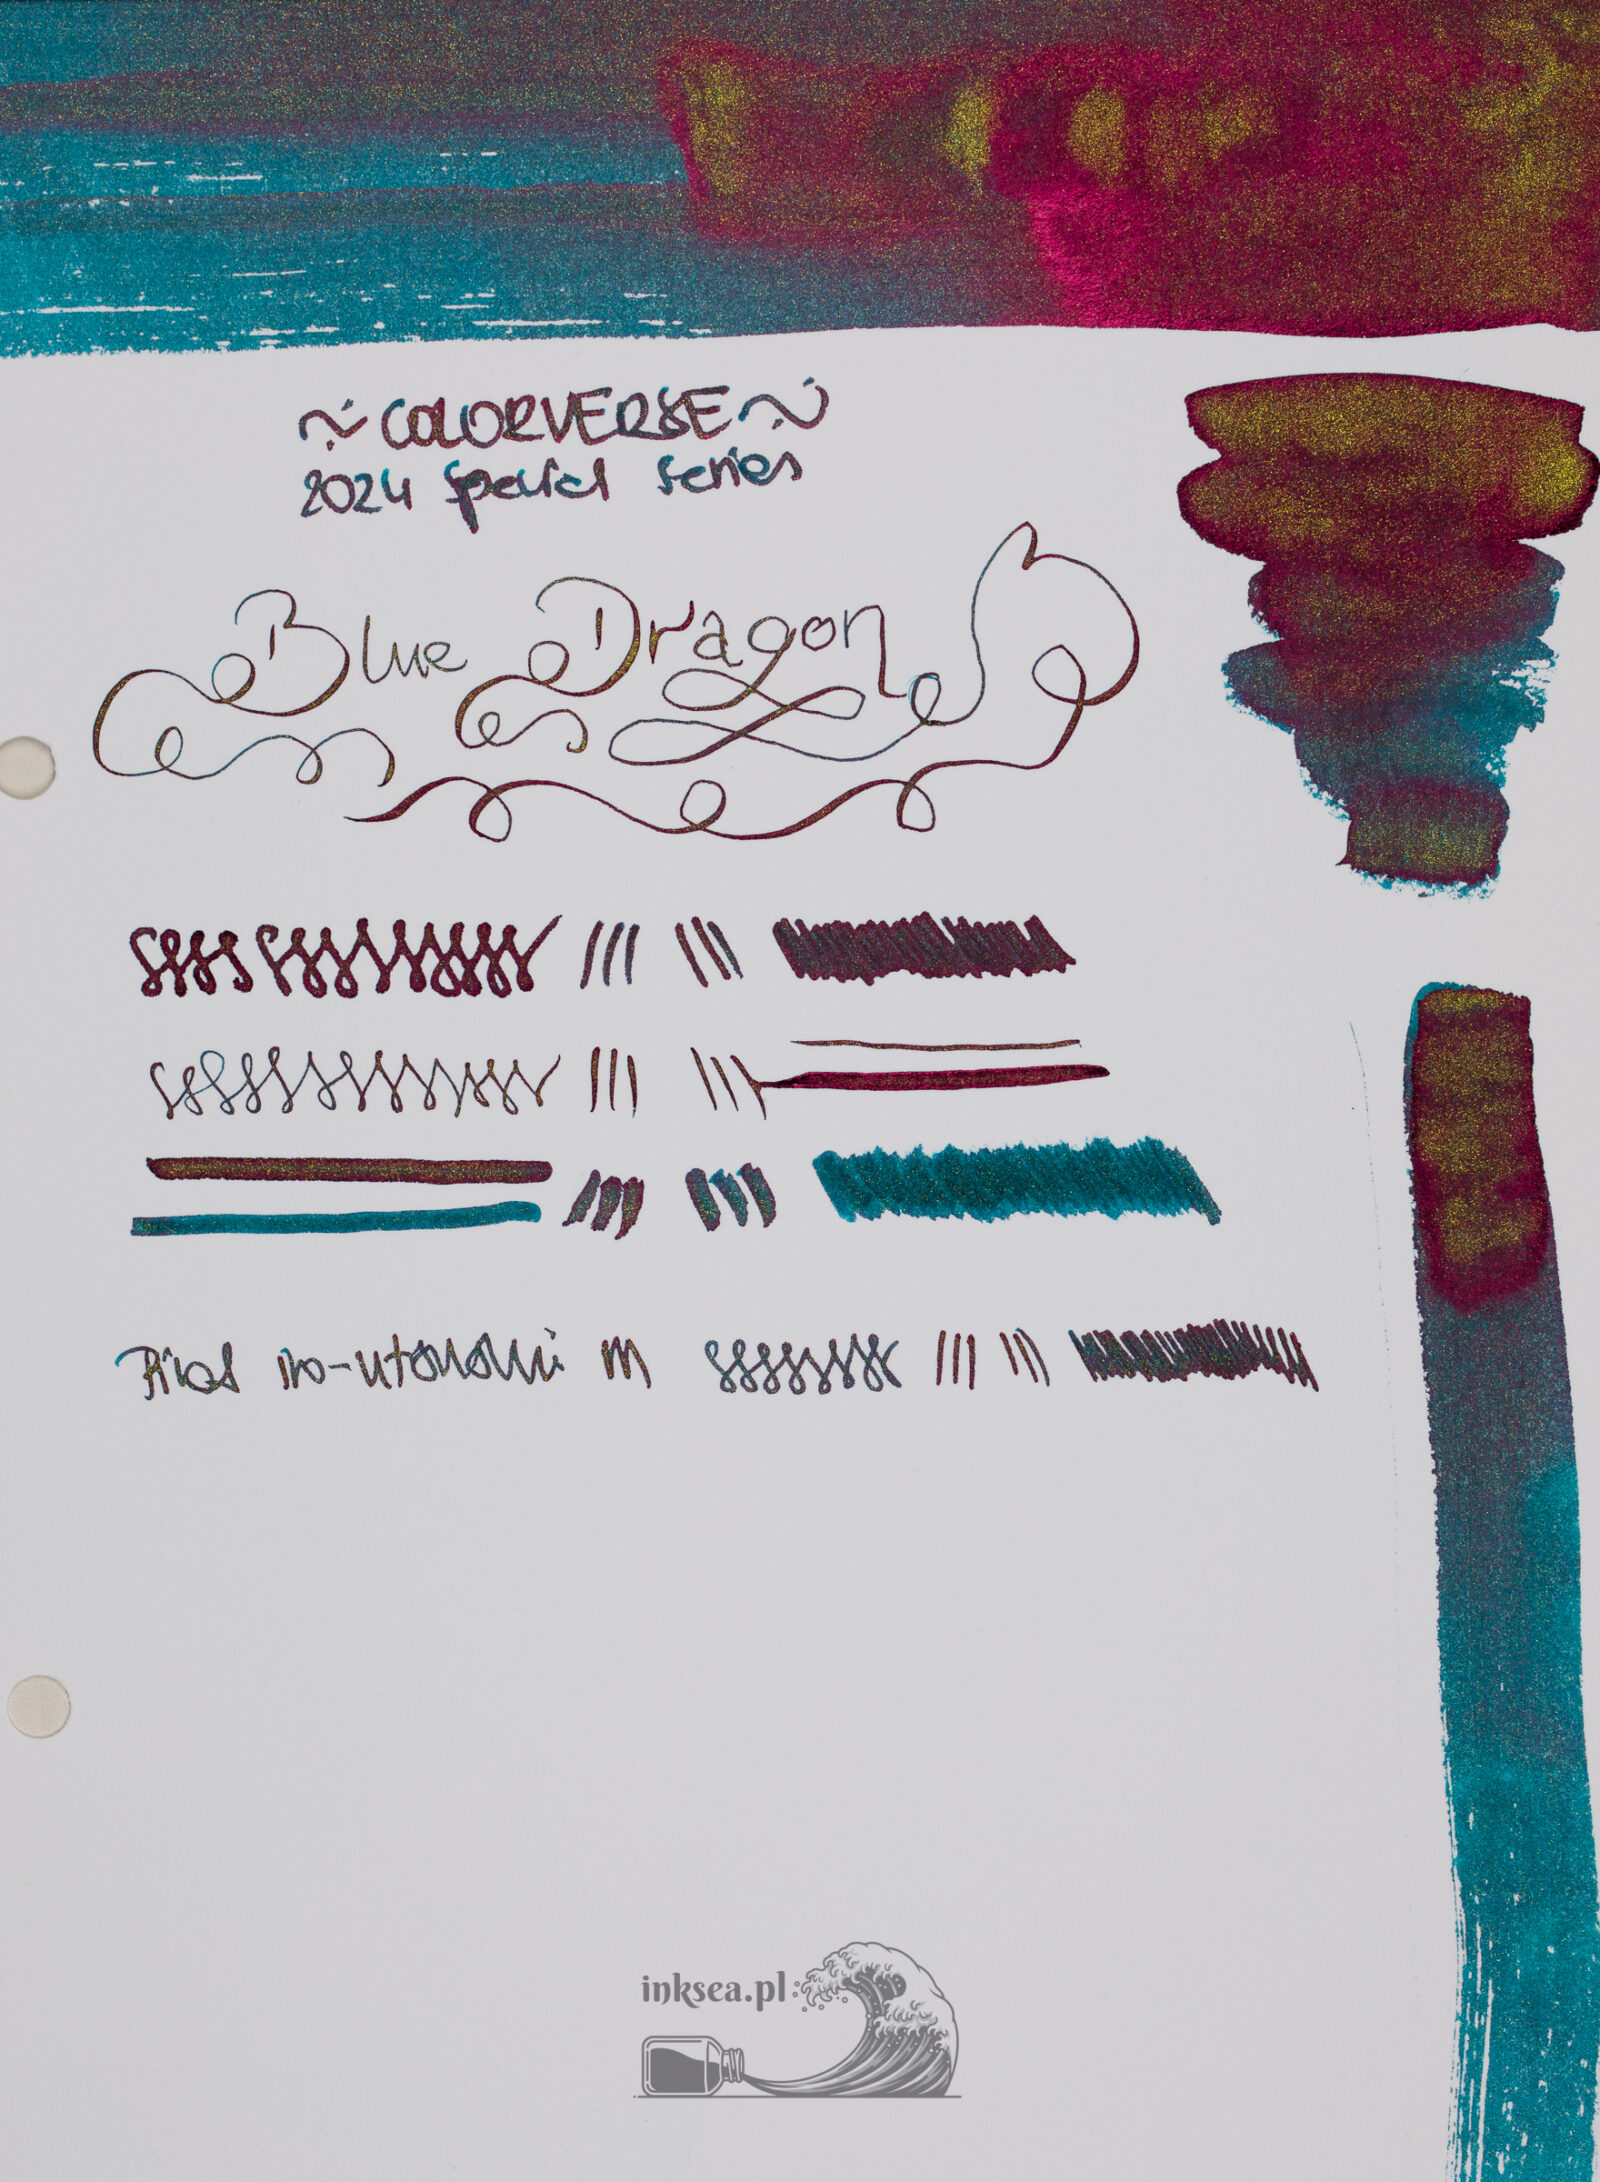 ~COLORVERSE~
2024 special series
Blue Dragon
Pilot iro-utsushi m
inksea.pl